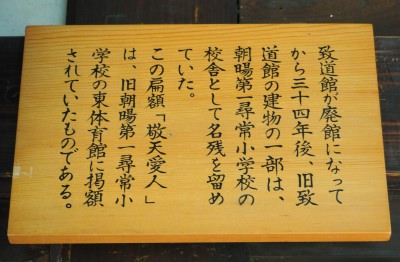 致道館が廃館になって
から三十四年後、旧致
道館の建物の一部は、
朝暘第一尋常小学校の
校舎として名残を留め
ていた。
この扁額「敬天愛人」
は、旧朝暘第一尋常小
学校の東体育館に掲額
されていたものである。